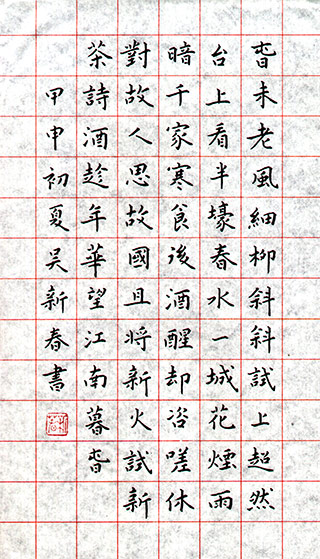 旾未老風細柳斜斜試上超然
台上看半壕春水一城花煙雨
暗千家寒食後酒醒却咨嗟休
對故人思故國且將新火試新
茶詩酒趁年華望江南暮旾
甲申初夏吴新春書